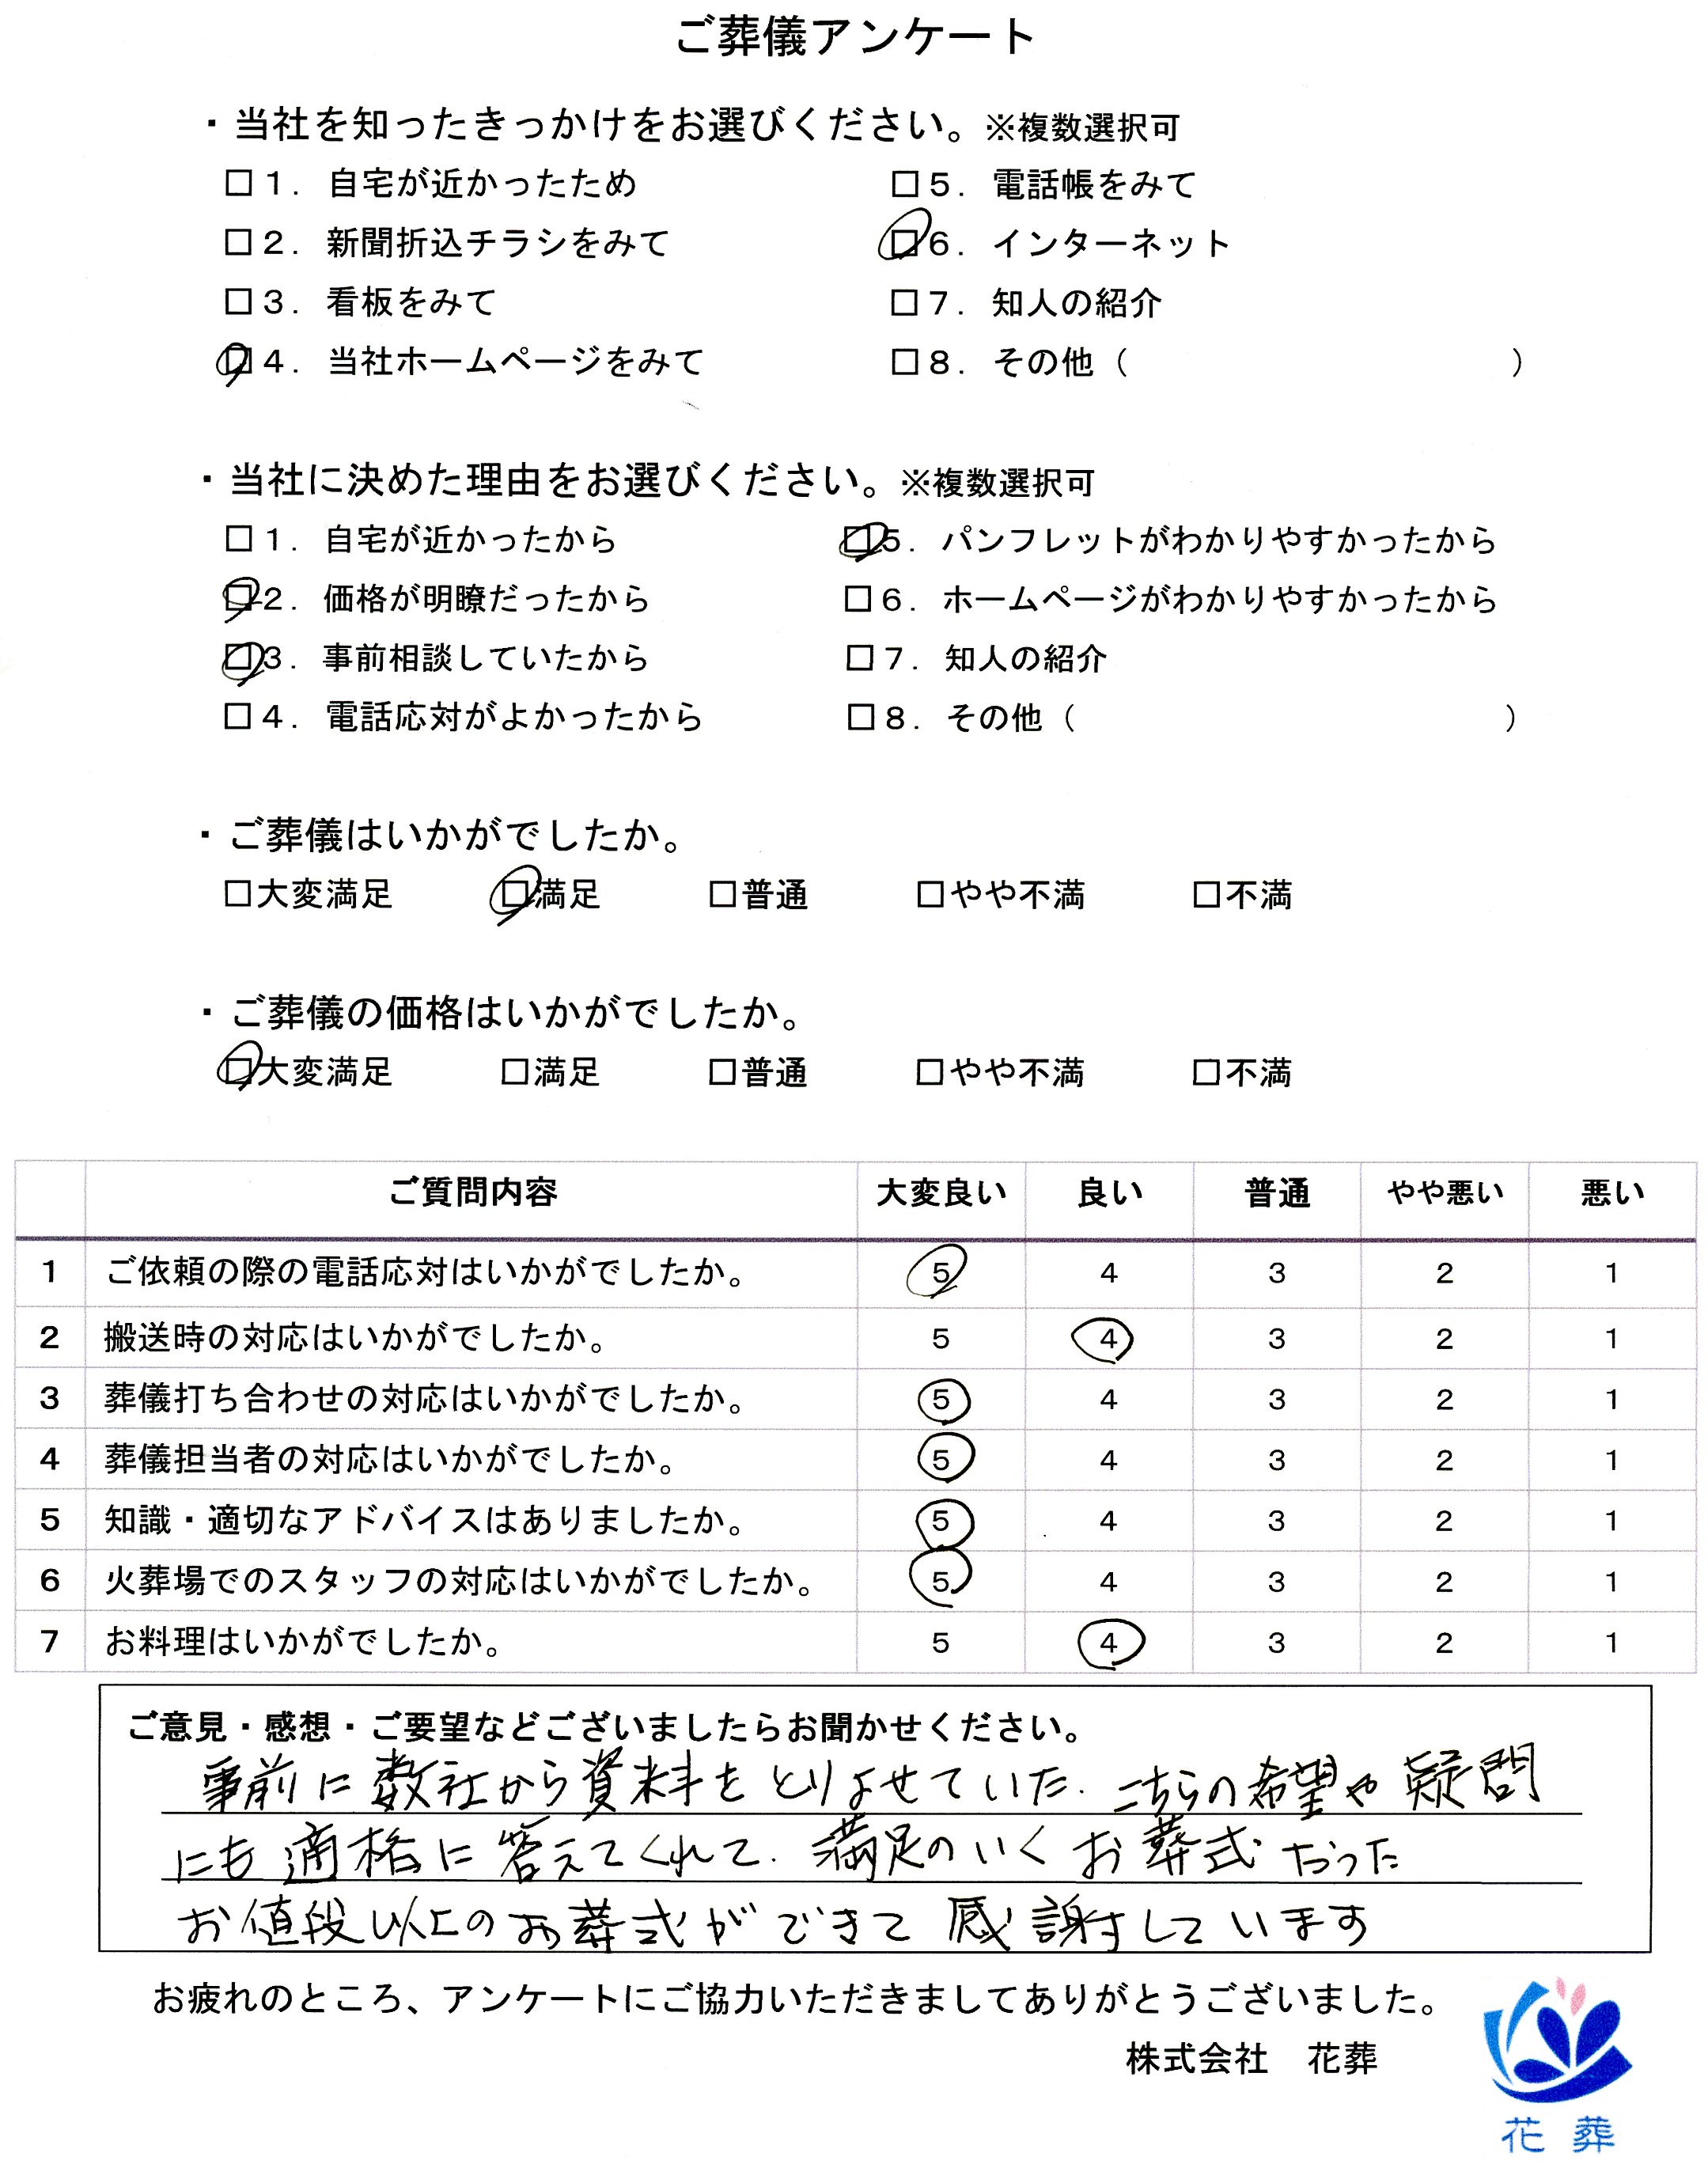 ご葬儀アンケート
・当社を知ったきっかけをお選びください。※複数選択可
□1．自宅が近かったため　□5．電話帳をみて
□2．新聞折込チラシをみて　□6．インターネット
□3．看板をみて　□7．知人の紹介
□4．当社ホームページをみて　□8．その他（　　　）
・当社に決めた理由をお選びください。※複数選択可
□1．自宅が近かったから　□5．パンフレットがわかりやすかったから
□2．価格が明瞭だったから　□6．ホームページがわかりやすかったから
□3．事前相談していたから　□7．知人の紹介
□4．電話応対がよかったから　□8．その他（　　　）
・ご葬儀はいかがでしたか。
□大変満足　□満足　□普通　□やや不満　□不満
・ご葬儀の価格はいかがでしたか。
□大変満足　□満足　□普通　□やや不満　□不満
ご質問内容　大変良い　良い　普通　やや悪い　悪い
1　ご依頼の際の電話応対はいかがでしたか。　5　4　3　2　1
2　搬送時の対応はいかがでしたか。　5　4　3　2　1
3　葬儀打ち合わせの対応はいかがでしたか。　5　4　3　2　1
4　葬儀担当者の対応はいかがでしたか。　5　4　3　2　1
5　知識・適切なアドバイスはありましたか。　5　4　3　2　1
6　火葬場でのスタッフの対応はいかがでしたか。　5　4　3　2　1
7　お料理はいかがでしたか。　5　4　3　2　1
ご意見・感想・ご要望などございましたらお聞かせください。
事前に数社から資料をとりよせていた．こちらの希望や疑問
にも適格に答えてくれて．満足のいくお葬式だった
お値段以上のお葬式ができて感謝しています
お疲れのところ、アンケートにご協力いただきましてありがとうございました。
株式会社　花葬
花葬